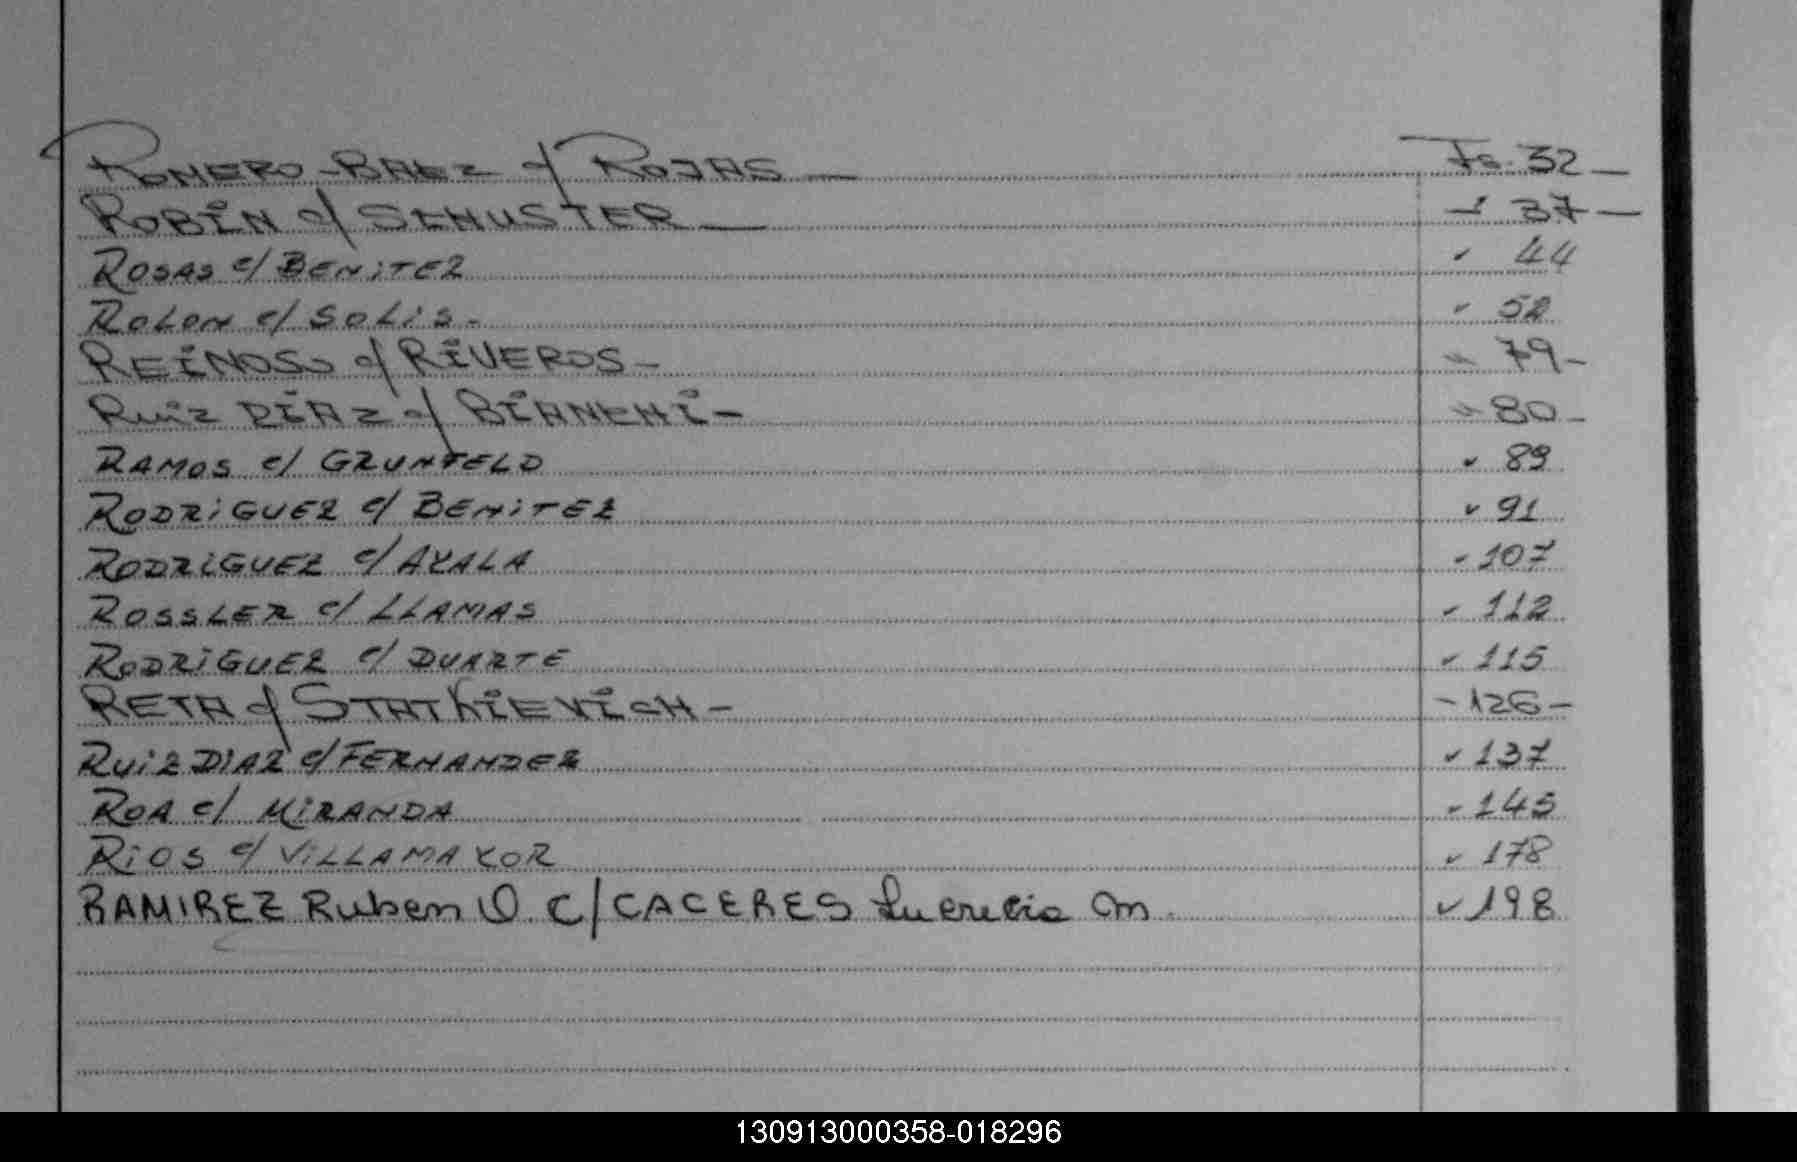 ROMERO-BAEZ c/ ROJAS — Fs. 32 —
ROBIN c/ SCHUSTER — " 37 —
ROSAS c/ BENITEZ " 44
ROLON c/ SOLIS - " 52
REINOSO c/ RIVEROS - " 79 -
RUIZ DIAZ c/ BIANCHI - " 80 -
RAMOS c/ GRUNFELD " 89
RODRIGUEZ c/ BENITEZ " 91
RODRIGUEZ c/ AYALA " 107
ROSSLER c/ LLAMAS " 112
RODRIGUEZ c/ DUARTE " 115
RETA c/ STATKIEVICH - - 126 -
RUIZ DIAZ c/ FERNANDEZ " 137
ROA c/ MIRANDA " 145
RIOS c/ VILLAMAYOR " 178
RAMIREZ Ruben O. C/ CACERES Lucrecia M. " 198
130913000358-018296